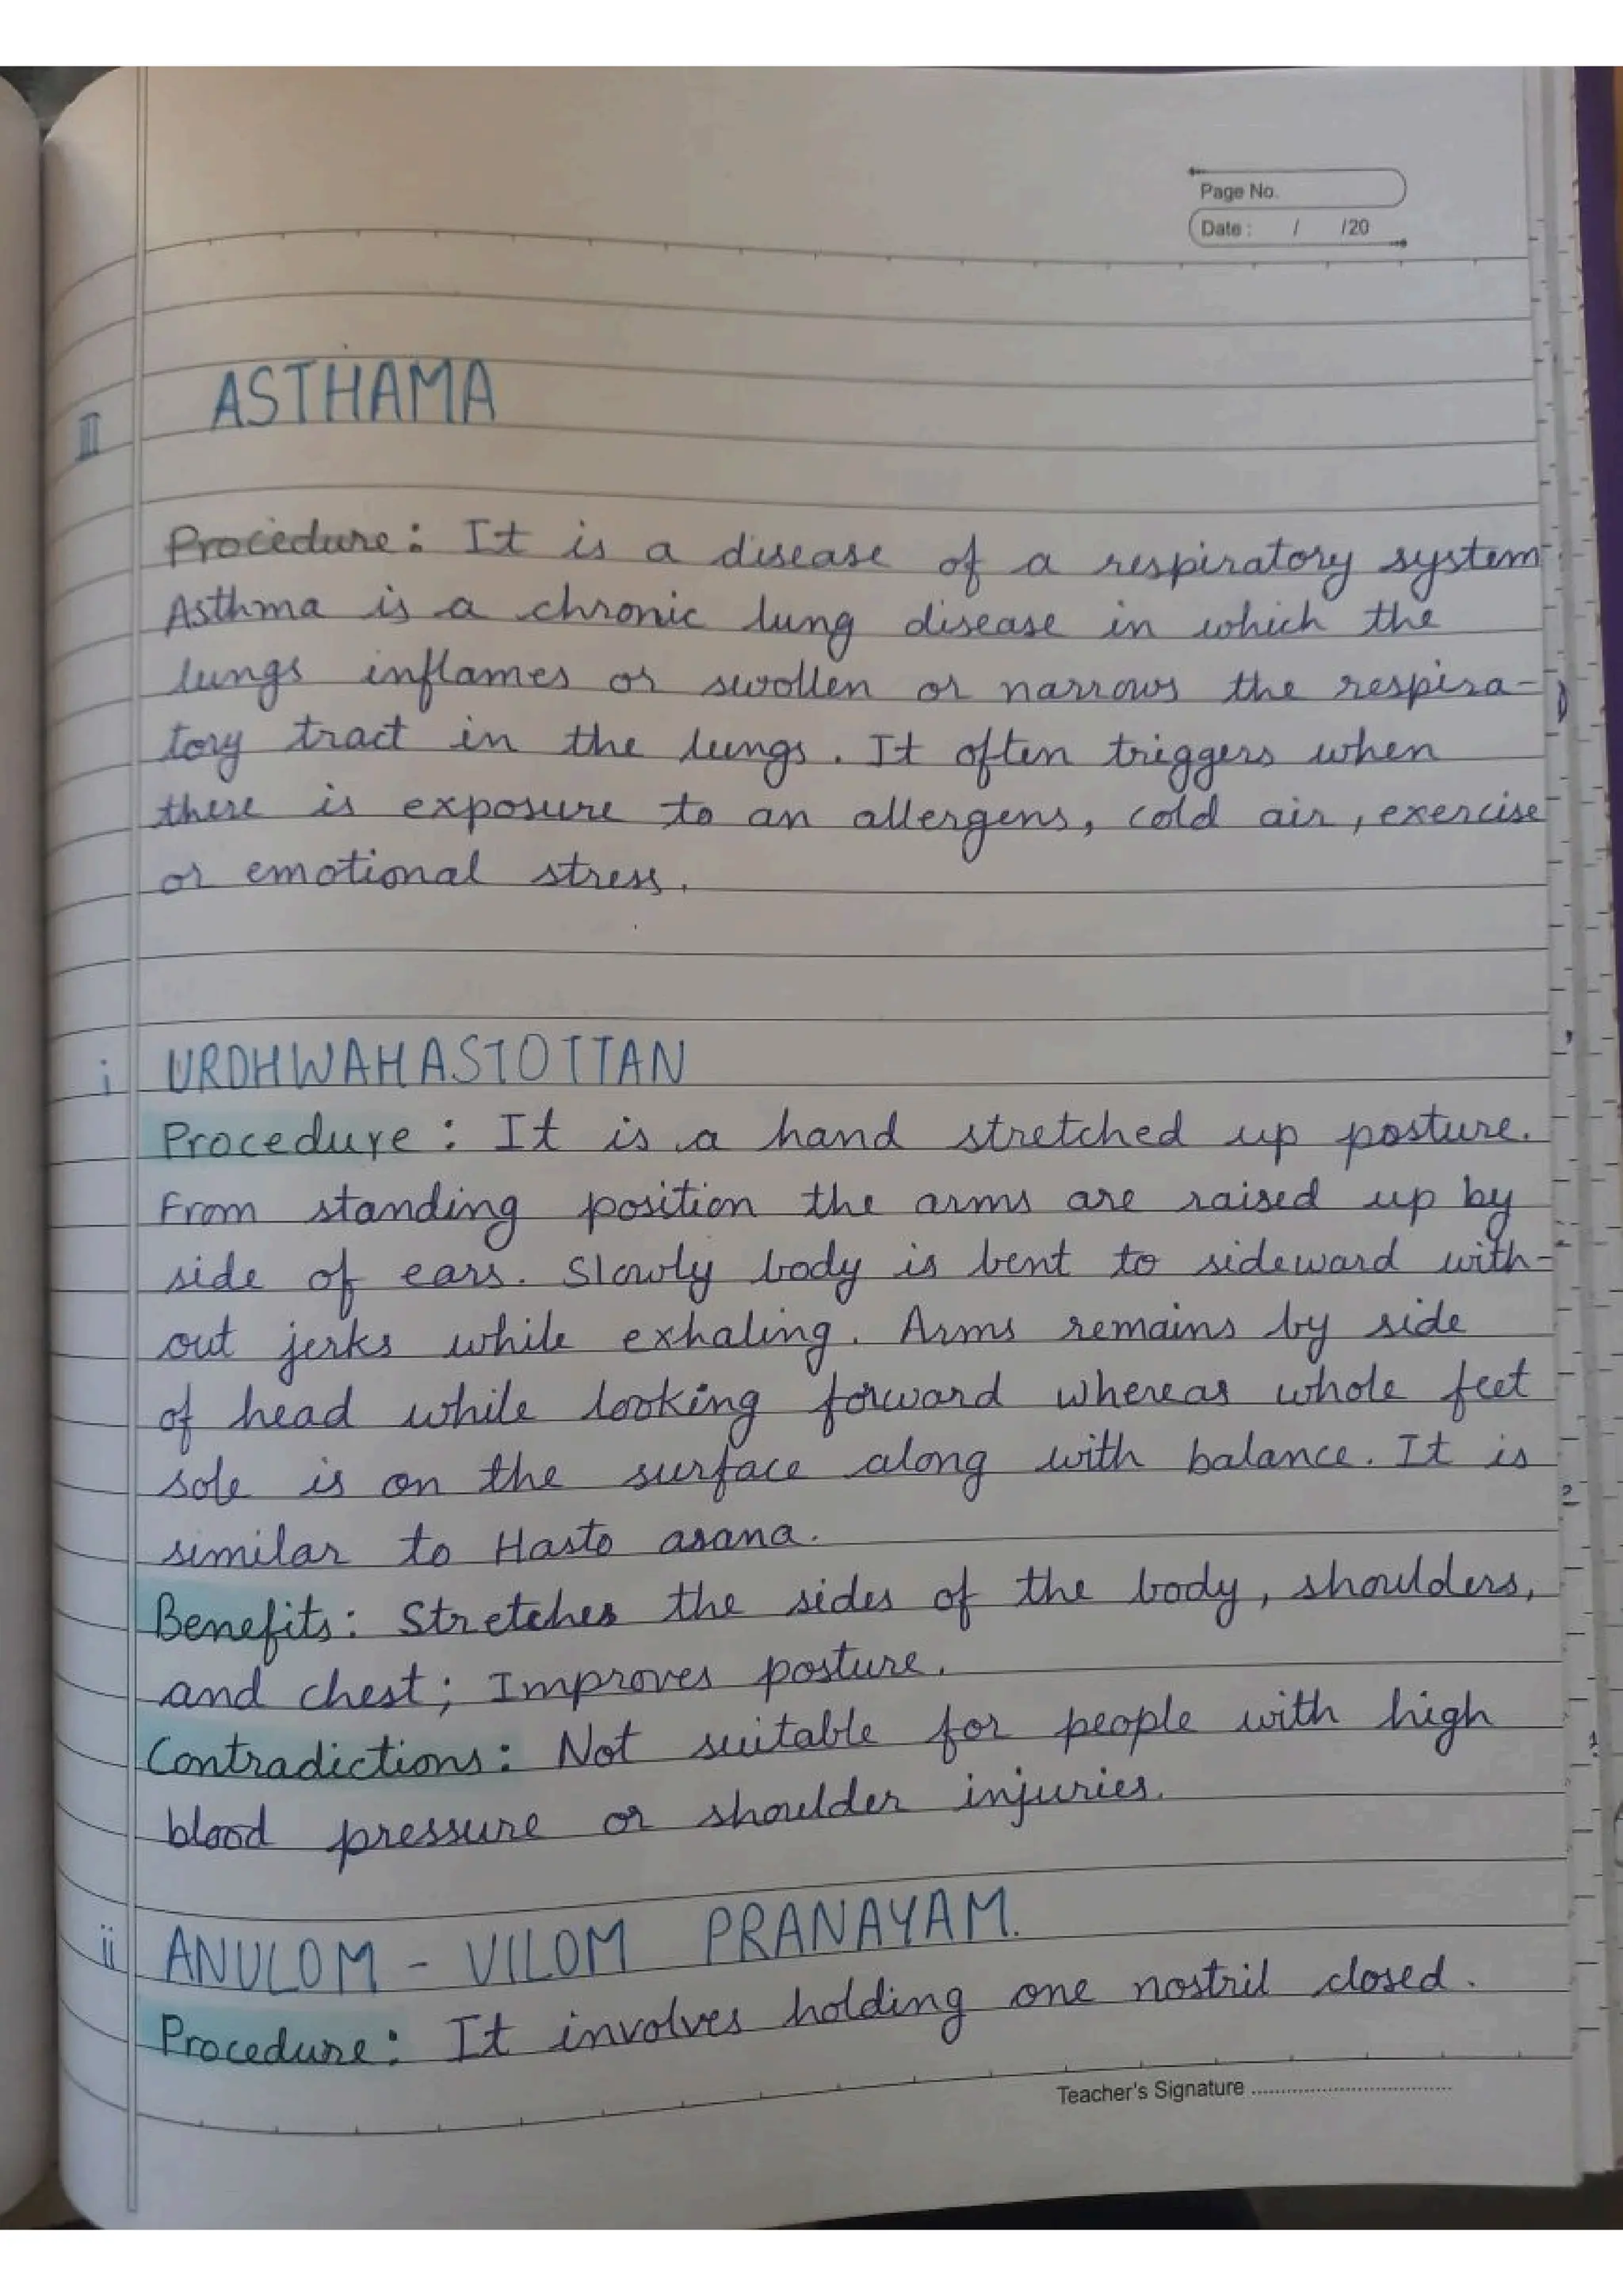 Page No.
Date : / /20
III ASTHAMA
Procedure : It is a disease of a respiratory system.
Asthma is a chronic lung disease in which the
lungs inflames or swollen or narrows the respira-
tory tract in the lungs. It often triggers when
there is exposure to an allergens, cold air, exercise
or emotional stress.
i URDHWAHASTOTTAN
Procedure : It is a hand stretched up posture.
From standing position the arms are raised up by
side of ears. Slowly body is bent to sideward with-
out jerks while exhaling. Arms remains by side
of head while looking forward whereas whole feet
sole is on the surface along with balance. It is
similar to Hasto asana.
Benefits : Stretches the sides of the body, shoulders,
and chest; Improves posture.
Contradictions : Not suitable for people with high
blood pressure or shoulder injuries.
ii ANULOM - VILOM PRANAYAM.
Procedure : It involves holding one nostril closed.
Teacher's Signature